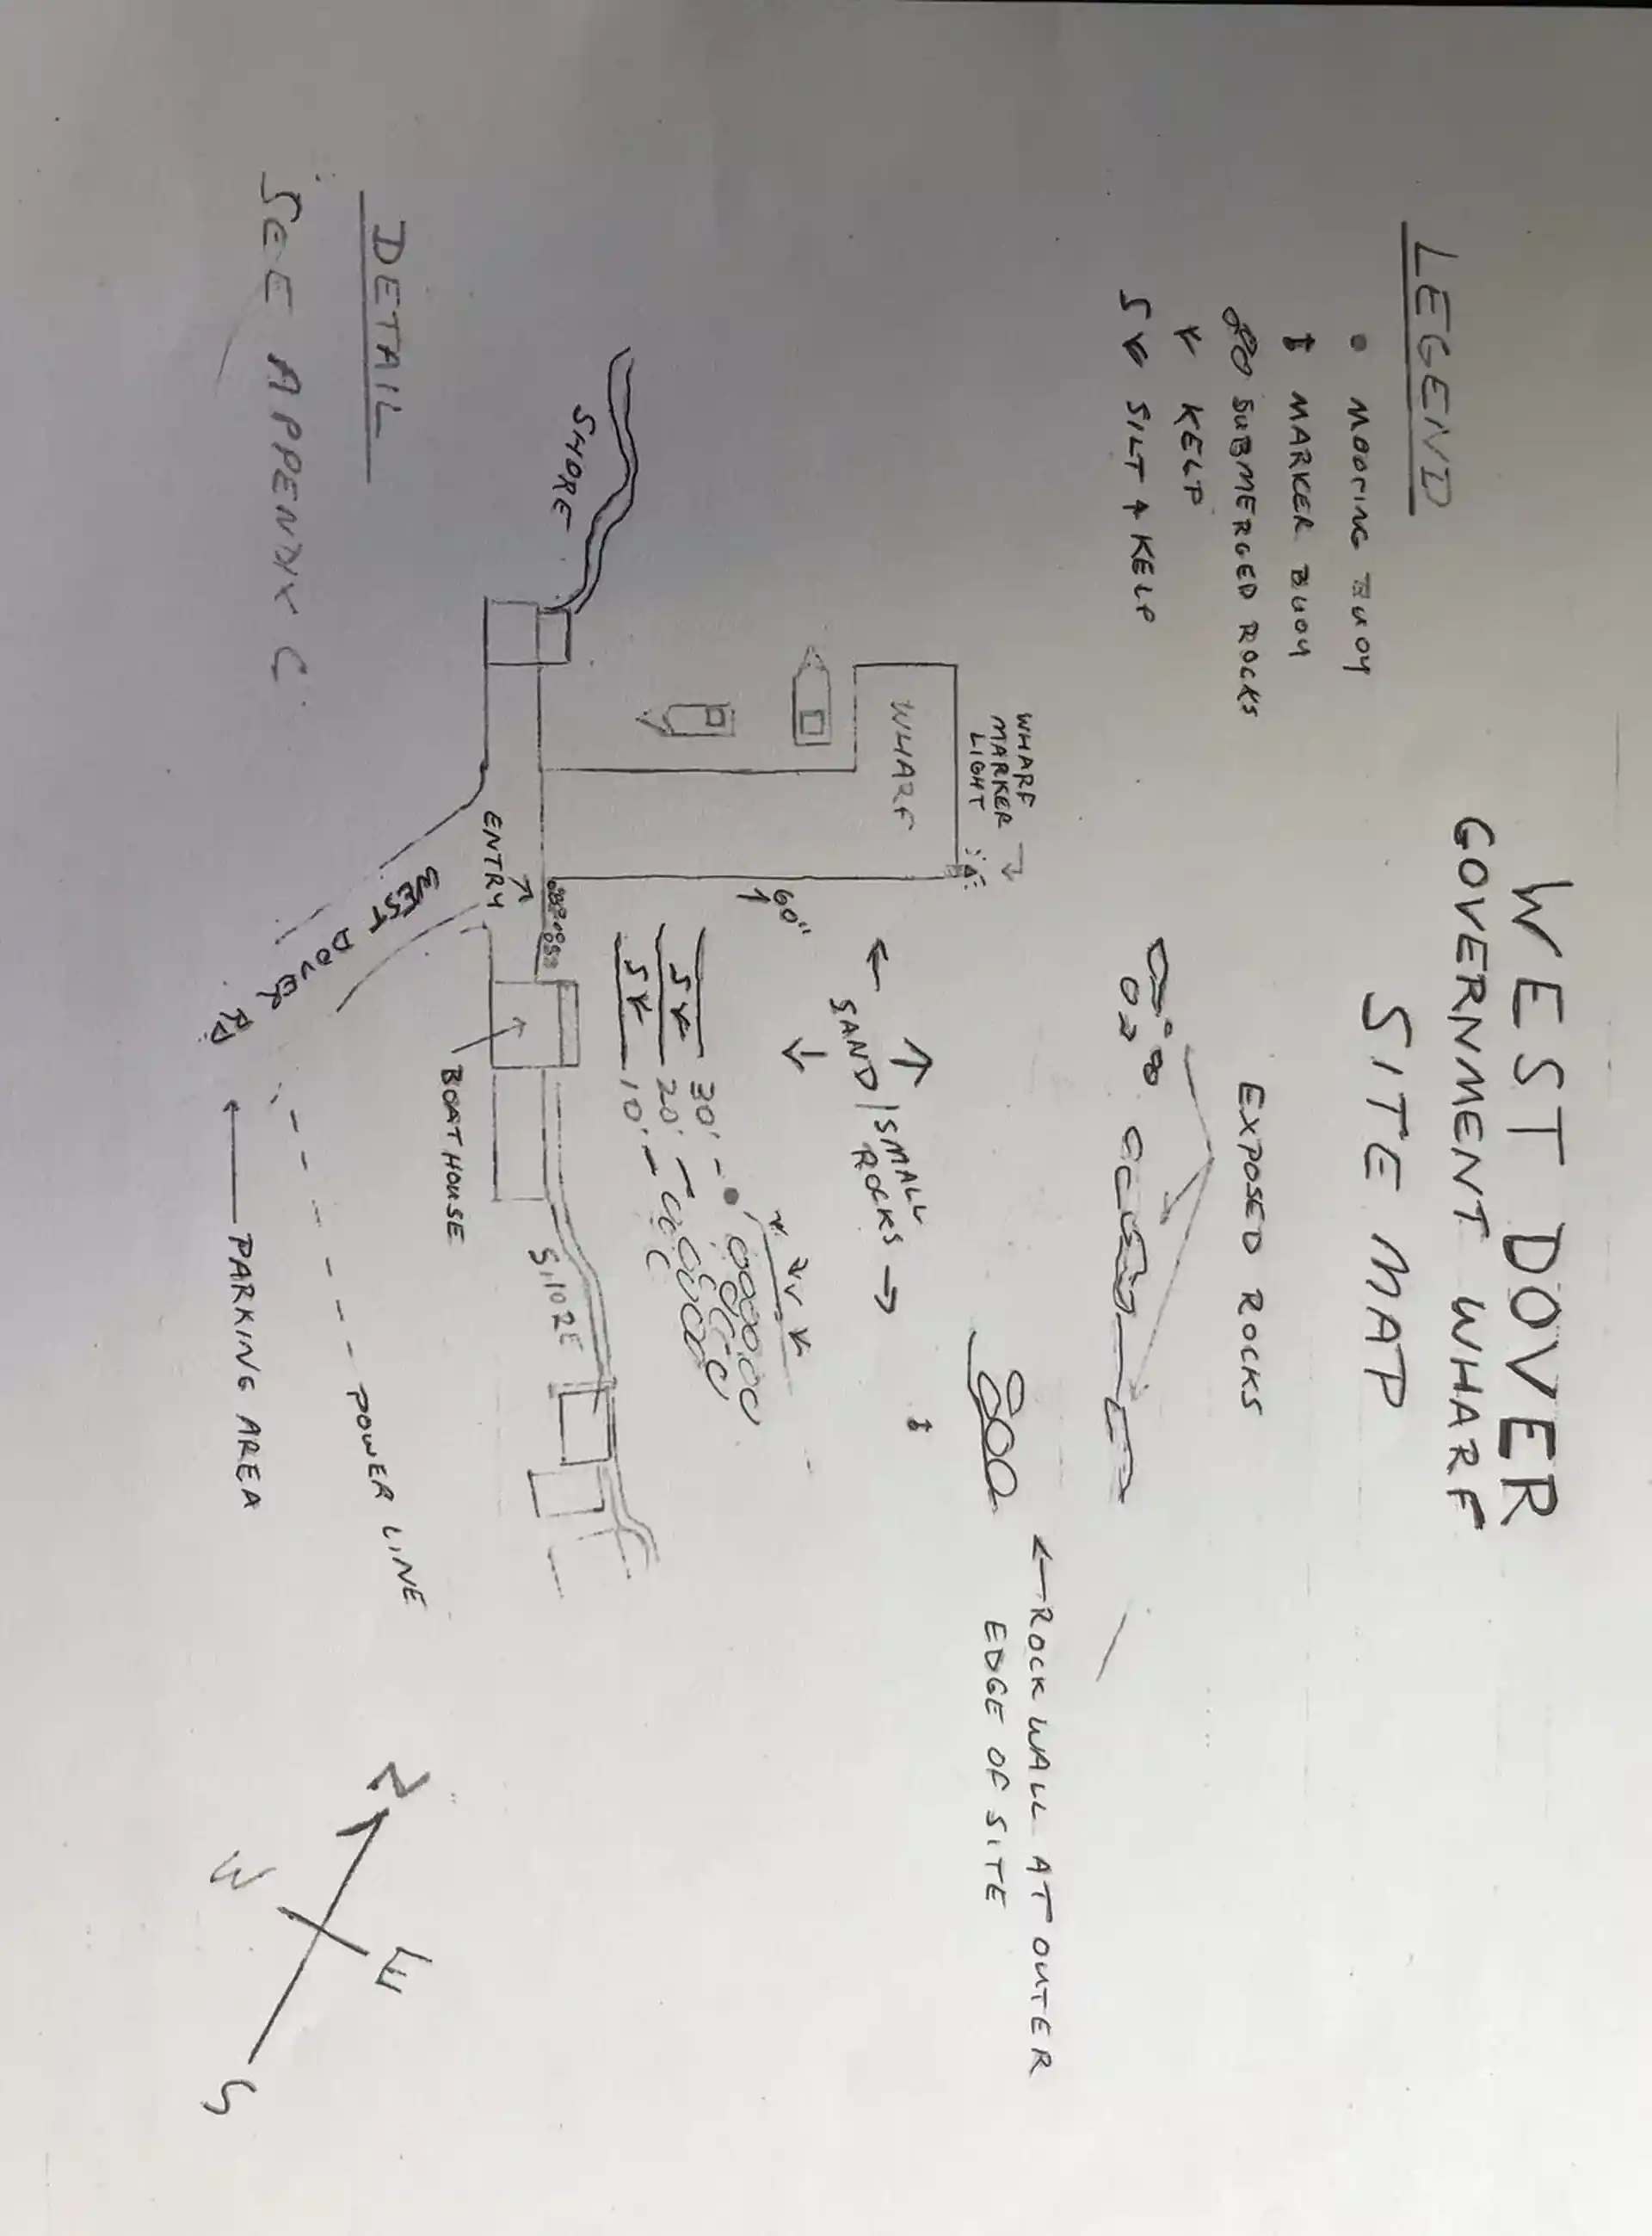 WEST DOVER
GOVERNMENT WHARF
SITE MAP
LEGEND
MOORING BUOY
MARKER BUOY
SUBMERGED ROCKS
KELP
S SILT + KELP
EXPOSED ROCKS
← ROCK WALL AT OUTER
EDGE OF SITE
WHARF
MARKER
LIGHT
WHARF
← SAND / SMALL
ROCKS →
60"
30'
20'
10'
S
S
SHORE
SHORE
ENTRY
BOAT HOUSE
WEST DOVER RD
POWER LINE
PARKING AREA
DETAIL
SEE APPENDIX C
N
W
E
S